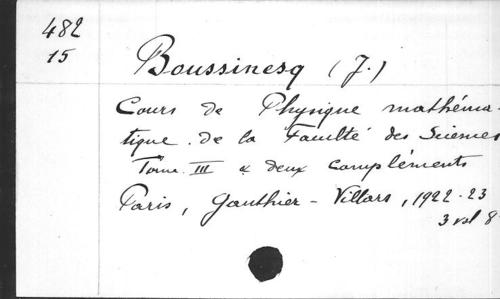 482
15
Boussinesq (J.)
Cours de Physique mathéma-
tique de la Faculté des Sciences
Tome III & deux compléments
Paris, Gauthier-Villars, 1922-23
3 vol 8°